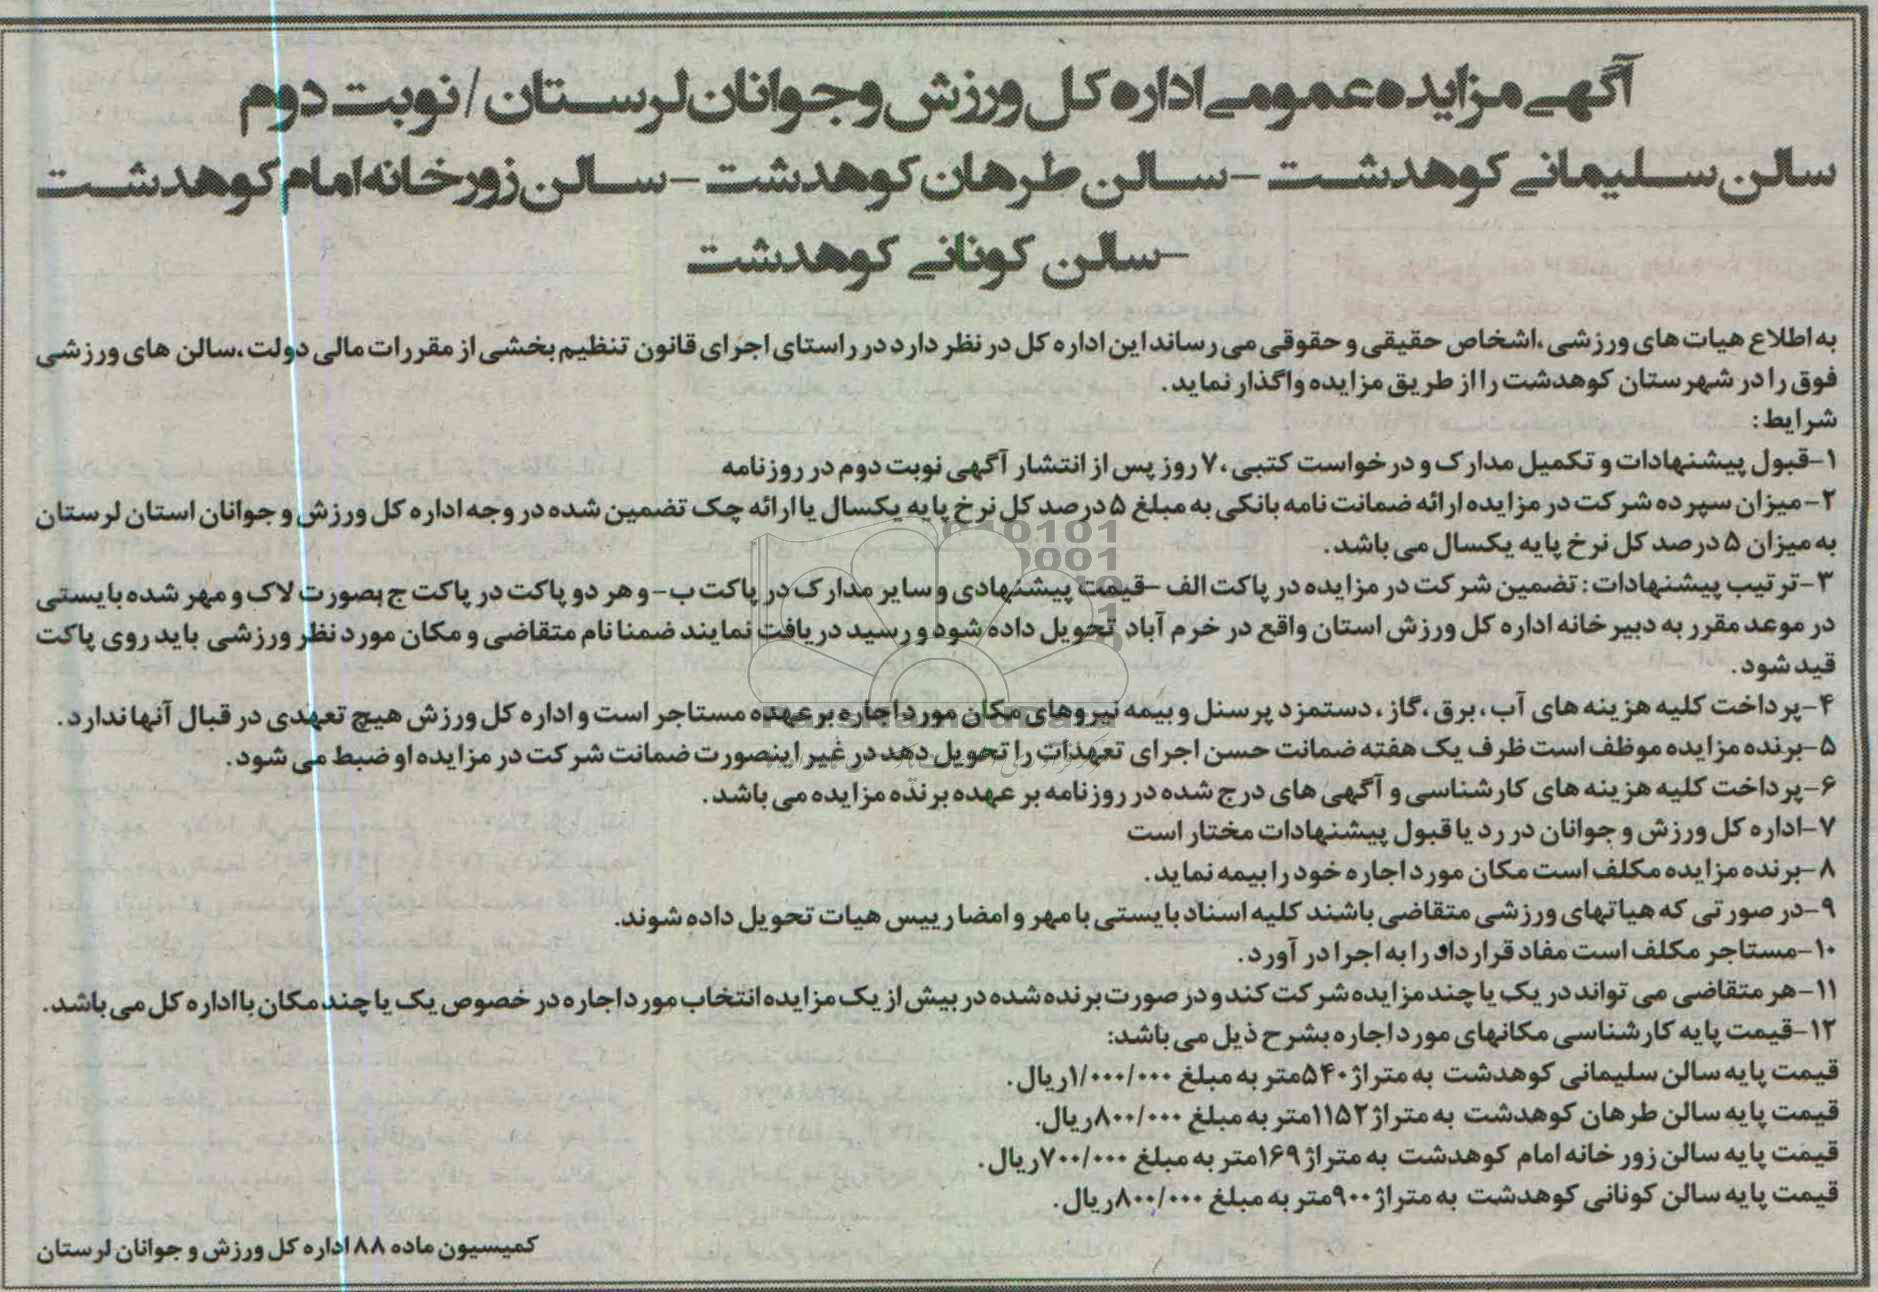 آگهی مزایده عمومی اداره کل ورزش و جوانان لرستان / نوبت دوم
سالن سلیمانی کوهدشت - سالن طرهان کوهدشت - سالن زورخانه امام کوهدشت
- سالن کونانی کوهدشت
به اطلاع هیات های ورزشی ،اشخاص حقیقی و حقوقی می رساند این اداره کل در نظر دارد در راستای اجرای قانون تنظیم بخشی از مقررات مالی دولت،سالن های ورزشی
فوق را در شهرستان کوهدشت را از طریق مزایده واگذار نماید.
شرایط:
۱-قبول پیشنهادات و تکمیل مدارک و درخواست کتبی ،۷ روز پس از انتشار آگهی نوبت دوم در روزنامه
۲-میزان سپرده شرکت در مزایده ارائه ضمانت نامه بانکی به مبلغ ۵ درصد کل نرخ پایه یکسال یا ارائه چک تضمین شده در وجه اداره کل ورزش و جوانان استان لرستان
به میزان ۵ درصد کل نرخ پایه یکسال می باشد.
۳-ترتیب پیشنهادات: تضمین شرکت در مزایده در پاکت الف -قیمت پیشنهادی و سایر مدارک در پاکت ب- و هر دو پاکت در پاکت ج بصورت لاک و مهر شده بایستی
در موعد مقرر به دبیرخانه اداره کل ورزش استان واقع در خرم آباد تحویل داده شود و رسید دریافت نمایند ضمنا نام متقاضی و مکان مورد نظر ورزشی باید روی پاکت
قید شود.
۴-پرداخت کلیه هزینه های آب ،برق ،گاز ، دستمزد پرسنل و بیمه نیروهای مکان مورد اجاره بر عهده مستاجر است و اداره کل ورزش هیچ تعهدی در قبال آنها ندارد.
۵-برنده مزایده موظف است ظرف یک هفته ضمانت حسن اجرای تعهدات را تحویل دهد در غیر اینصورت ضمانت شرکت در مزایده او ضبط می شود.
۶-پرداخت کلیه هزینه های کارشناسی و آگهی های درج شده در روزنامه بر عهده برنده مزایده می باشد.
۷-اداره کل ورزش و جوانان در رد یا قبول پیشنهادات مختار است
۸-برنده مزایده مکلف است مکان مورد اجاره خود را بیمه نماید.
۹-در صورتی که هیاتهای ورزشی متقاضی باشند کلیه اسناد بایستی با مهر و امضا رییس هیات تحویل داده شوند.
۱۰-مستاجر مکلف است مفاد قرارداد را به اجرا در آورد.
۱۱-هر متقاضی می تواند در یک یا چند مزایده شرکت کند و در صورت برنده شده در بیش از یک مزایده انتخاب مورد اجاره در خصوص یک یا چند مکان با اداره کل می باشد.
۱۲-قیمت پایه کارشناسی مکانهای مورد اجاره بشرح ذیل می باشد:
قیمت پایه سالن سلیمانی کوهدشت به متراژ ۵۴۰متر به مبلغ ۱/۰۰۰/۰۰۰ریال.
قیمت پایه سالن طرهان کوهدشت به متراژ ۱۱۵۲متر به مبلغ ۸۰۰/۰۰۰ریال.
قیمت پایه سالن زورخانه امام کوهدشت به متراژ ۱۶۹متر به مبلغ ۷۰۰/۰۰۰ریال.
قیمت پایه سالن کونانی کوهدشت به متراژ ۹۰۰متر به مبلغ ۸۰۰/۰۰۰ریال.
کمیسیون ماده ۸۸ اداره کل ورزش و جوانان لرستان